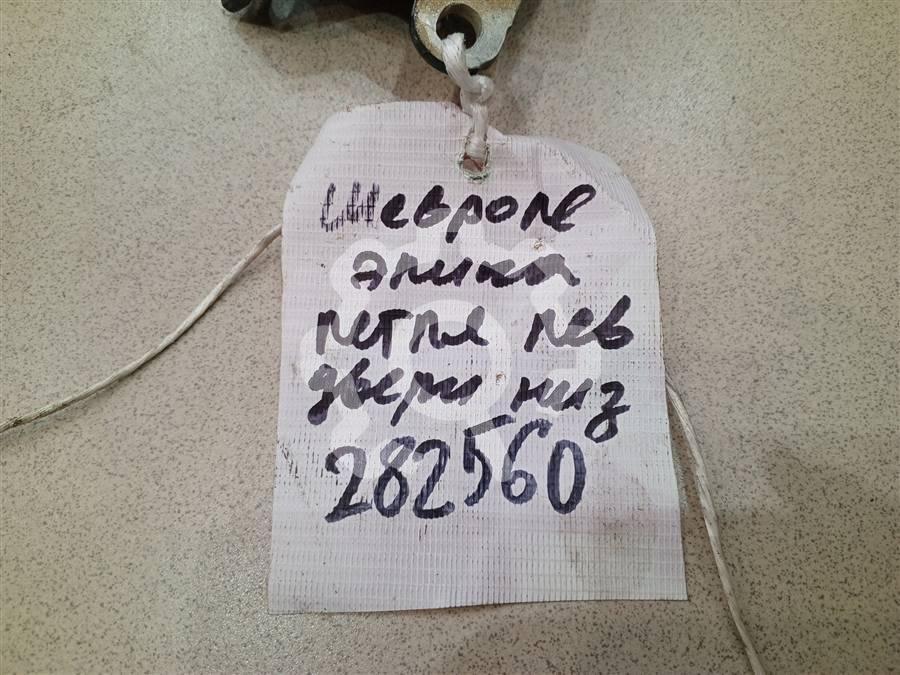 Шевроле
эпика
петля лев
двери низ
282560